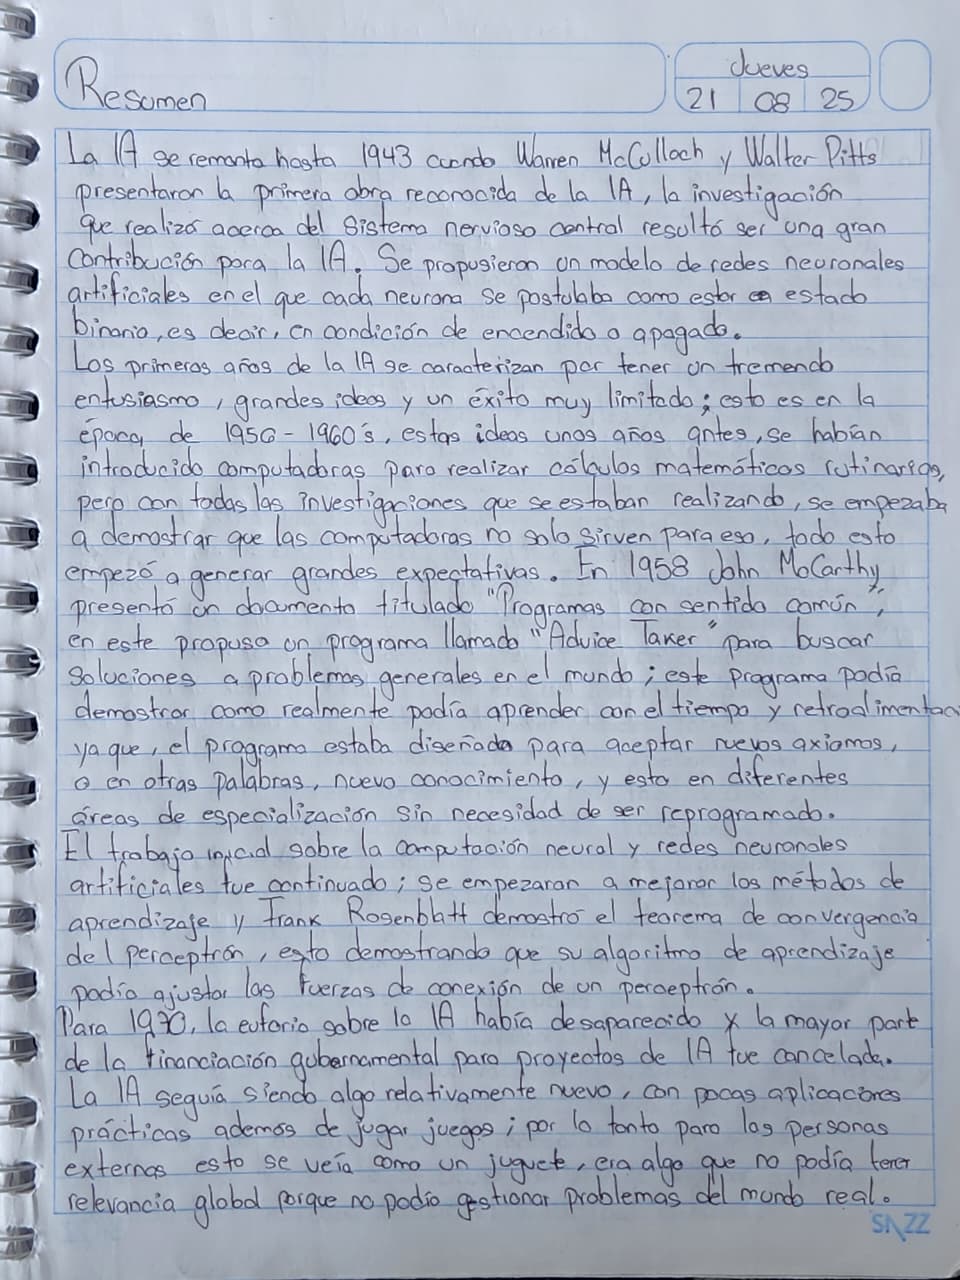 Resumen
Jueves
21 08 25
La IA se remonta hasta 1943 cuando Warren McCulloch y Walter Pitts
presentaron la primera obra reconocida de la IA, la investigación
que realizó acerca del sistema nervioso central resultó ser una gran
contribución para la IA. Se propusieron un modelo de redes neuronales
artificiales en el que cada neurona se postulaba como estar en estado
binario, es decir, en condición de encendido o apagado.
Los primeros años de la IA se caracterizan por tener un tremendo
entusiasmo, grandes ideas y un éxito muy limitado; esto es en la
época de 1950-1960's, estas ideas unos años antes, se habían
introducido computadoras para realizar cálculos matemáticos rutinarios,
pero con todas las investigaciones que se estaban realizando, se empezaba
a demostrar que las computadoras no solo sirven para eso, todo esto
empezó a generar grandes expectativas. En 1958 John McCarthy
presentó un documento titulado "Programas con sentido común",
en este propuso un programa llamado "Advice Taker" para buscar
soluciones a problemas generales en el mundo; este programa podía
demostrar como realmente podía aprender con el tiempo y
ya que, el programa estaba diseñado para aceptar nuevos axiomas,
o en otras palabras, nuevo conocimiento, y esto en diferentes
áreas de especialización sin necesidad de ser reprogramado.
El trabajo inicial sobre la computación neural y redes neuronales
artificiales fue continuado; se empezaron a mejorar los métodos de
aprendizaje y Frank Rosenblatt demostró el teorema de convergencia
del perceptrón, esto demostrando que su algoritmo de aprendizaje
podía ajustar las fuerzas de conexión de un perceptrón.
Para 1970, la euforia sobre la IA había desaparecido y la mayor parte
de la financiación gubernamental para proyectos de IA fue cancelada.
La IA seguía siendo algo relativamente nuevo, con pocas aplicaciones
prácticas además de jugar juegos; por lo tanto para las personas
externas esto se veía como un juguete, era algo que no podía tener
relevancia global porque no podía gestionar problemas del mundo real.